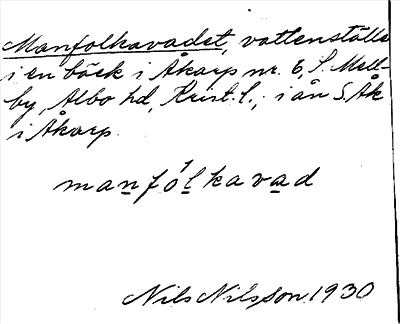 Manfolkavadet, vattenställe
i en bäck i Åkarp nr. 6, S. Mell-
by, Albo hd, Krist. l.; i ån S. Åk
i Åkarp.
manfolkavad
Nils Nilsson. 1930